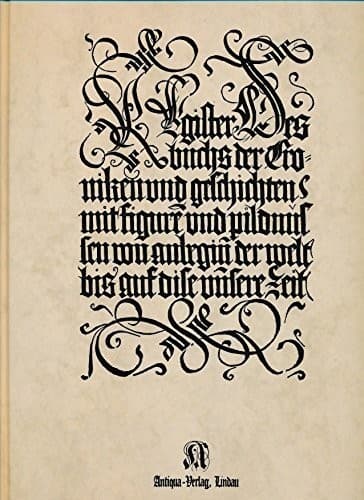 Register Des
buchs der Cro-
niken und geschichten
mit figurē und pildnus
sen von anbegiñ der welt
bis auf dise uñsere Zeit
Antiqua-Verlag, Lindau